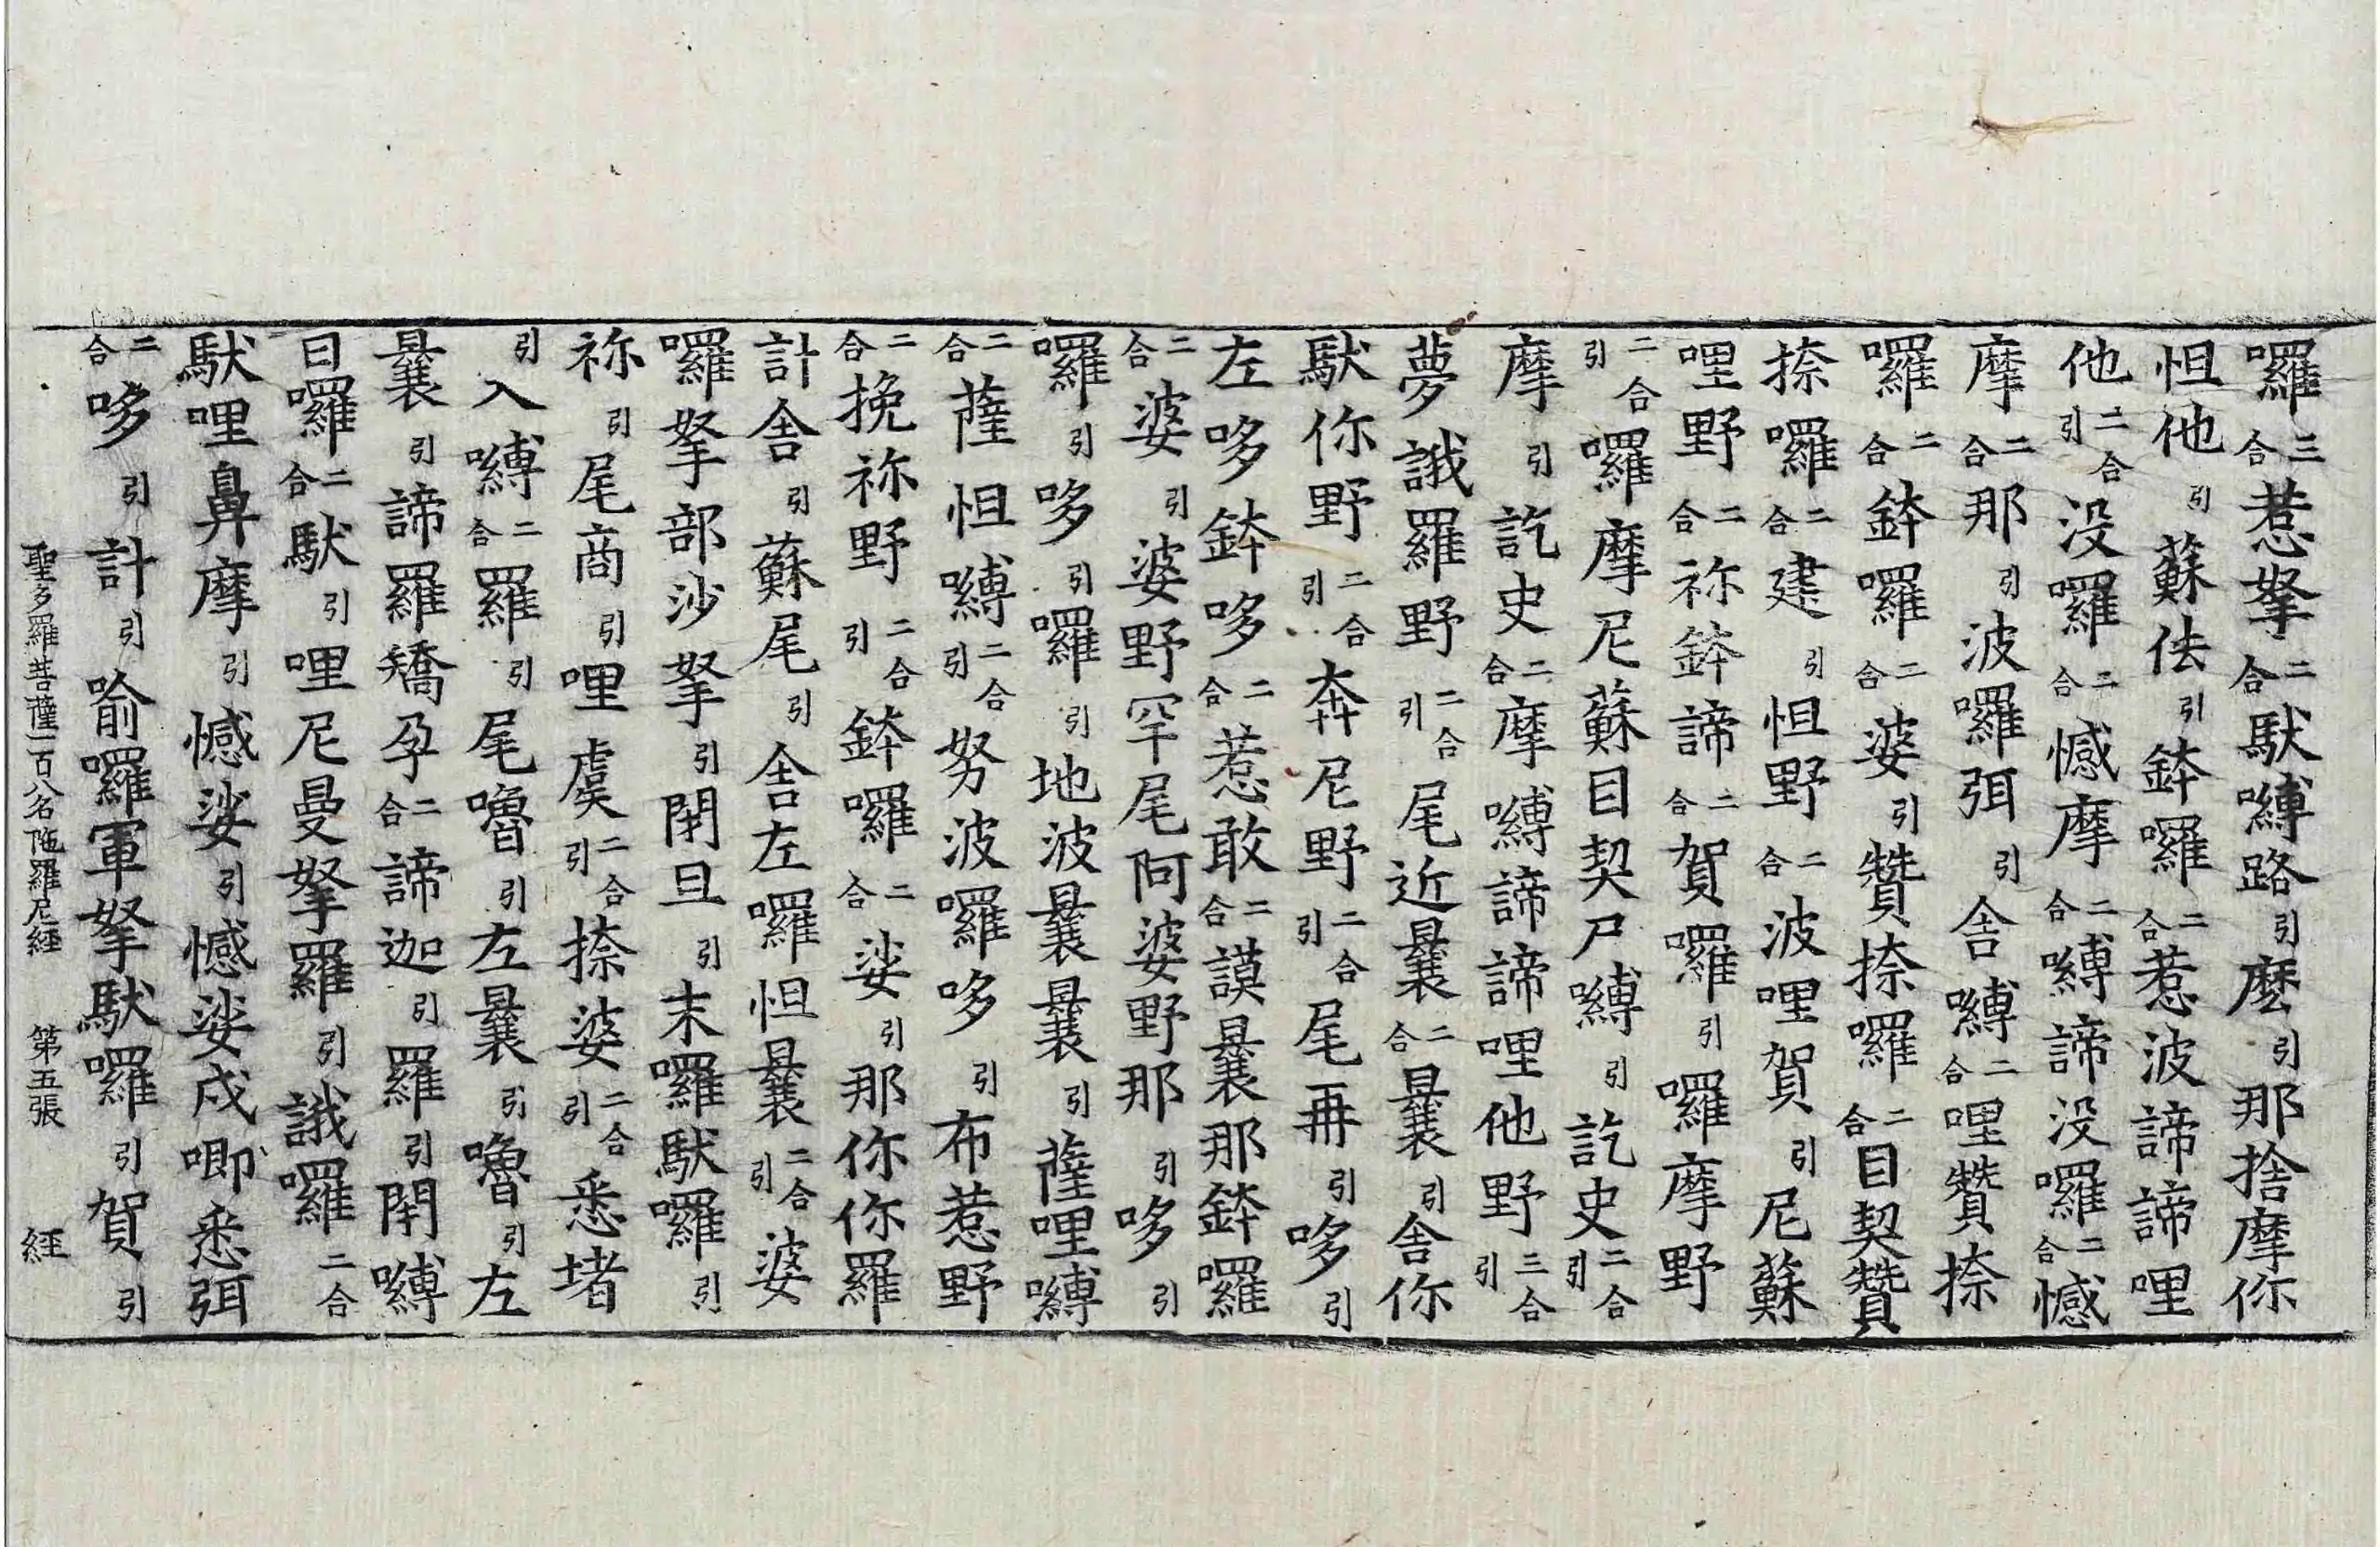 囉三合惹拏二合馱嚩路引麽引那捨摩你
怛他引蘇佉引鉢囉二合惹波諦諦哩
他二合引没囉二合憾摩二合嚩諦没囉二合憾
摩二合那引波囉弭引舍嚩二合哩贊捺
囉二合鉢囉二合婆引贊捺囉二合目契贊
捺囉二合建引怛野二合波哩賀引尼蘇
哩野二合祢鉢諦二合賀囉引囉摩野
二合引囉摩尼蘇目契尸嚩引訖史二合引
摩引訖史二合摩嚩諦諦哩他野三合引
夢誐羅野二合引尾近曩二合曩引舍你
馱你野二合引奔尼野二合引尾再引哆引
左哆鉢哆二合惹敢二合謨曩那鉢囉
二合婆引婆野罕尾阿婆野那引哆引
囉引哆引囉引地波曩曩引薩哩嚩
二合薩怛嚩二合引努波囉哆引布惹野
二合挽祢野二合引鉢囉二合娑引那你你羅
計舍引蘇尾引舍左囉怛曩二合引婆
囉拏部沙拏引閉旦引末囉馱囉引
祢引尾商引哩虞二合引捺婆二合引悉堵
引入嚩二合羅引尾嚕引左曩引嚕引左
曩引諦羅矯孕二合諦迦引羅引閉嚩
曰囉二合馱引哩尼曼拏羅引誐囉二合
馱哩鼻摩引憾娑引憾娑戍唧悉弭
二合哆引計引喻囉軍拏馱囉引賀引
聖多羅菩薩一百八名陁羅尼經 第五張 經